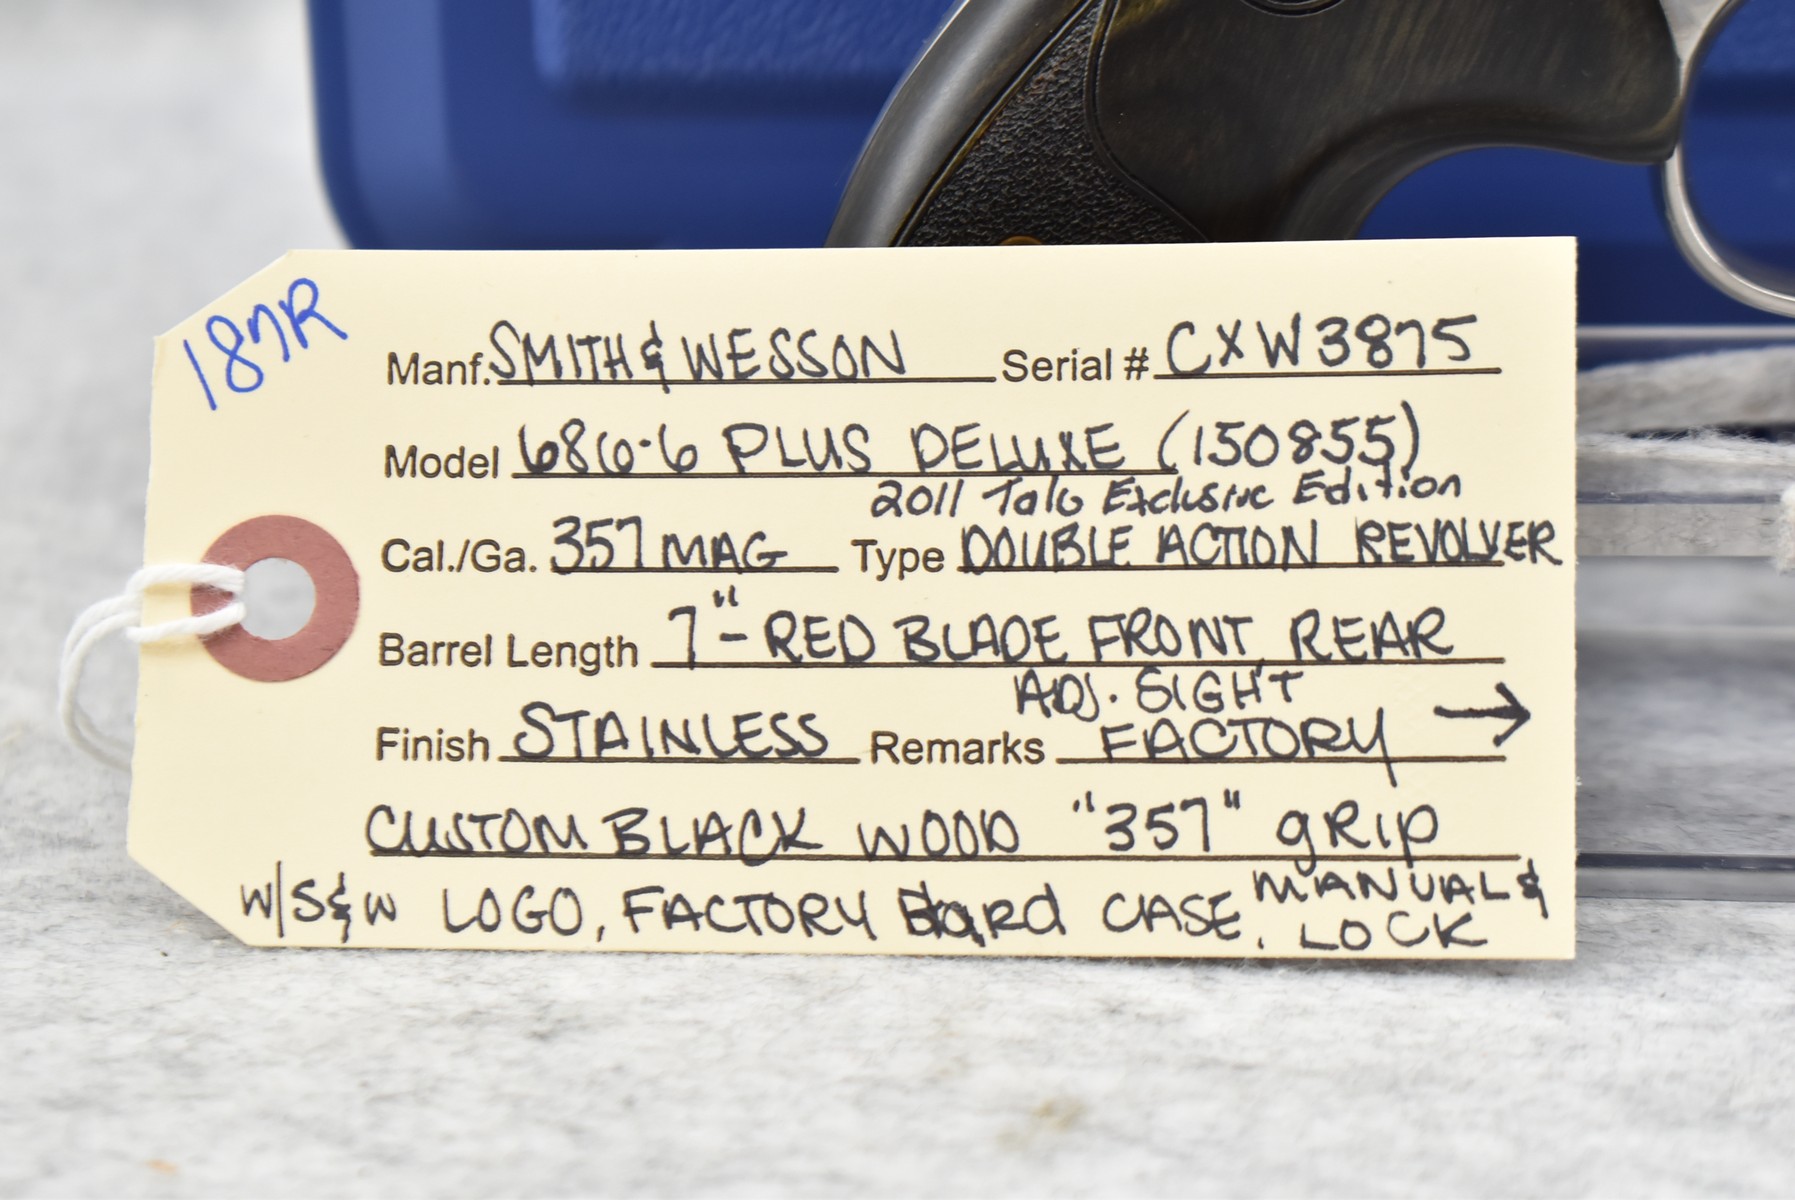 187R
Manf. SMITH & WESSON Serial # CXW3875
Model 686-6 PLUS DELUXE (150855)
2011 Talo Exclusive Edition
Cal./Ga. 357 MAG Type DOUBLE ACTION REVOLVER
Barrel Length 7" - RED BLADE FRONT, REAR
ADJ. SIGHT
Finish STAINLESS Remarks FACTORY →
CUSTOM BLACK WOOD "357" gRip
W/S&W LOGO, FACTORY HaRd CASE, MANUAL &
LOCK